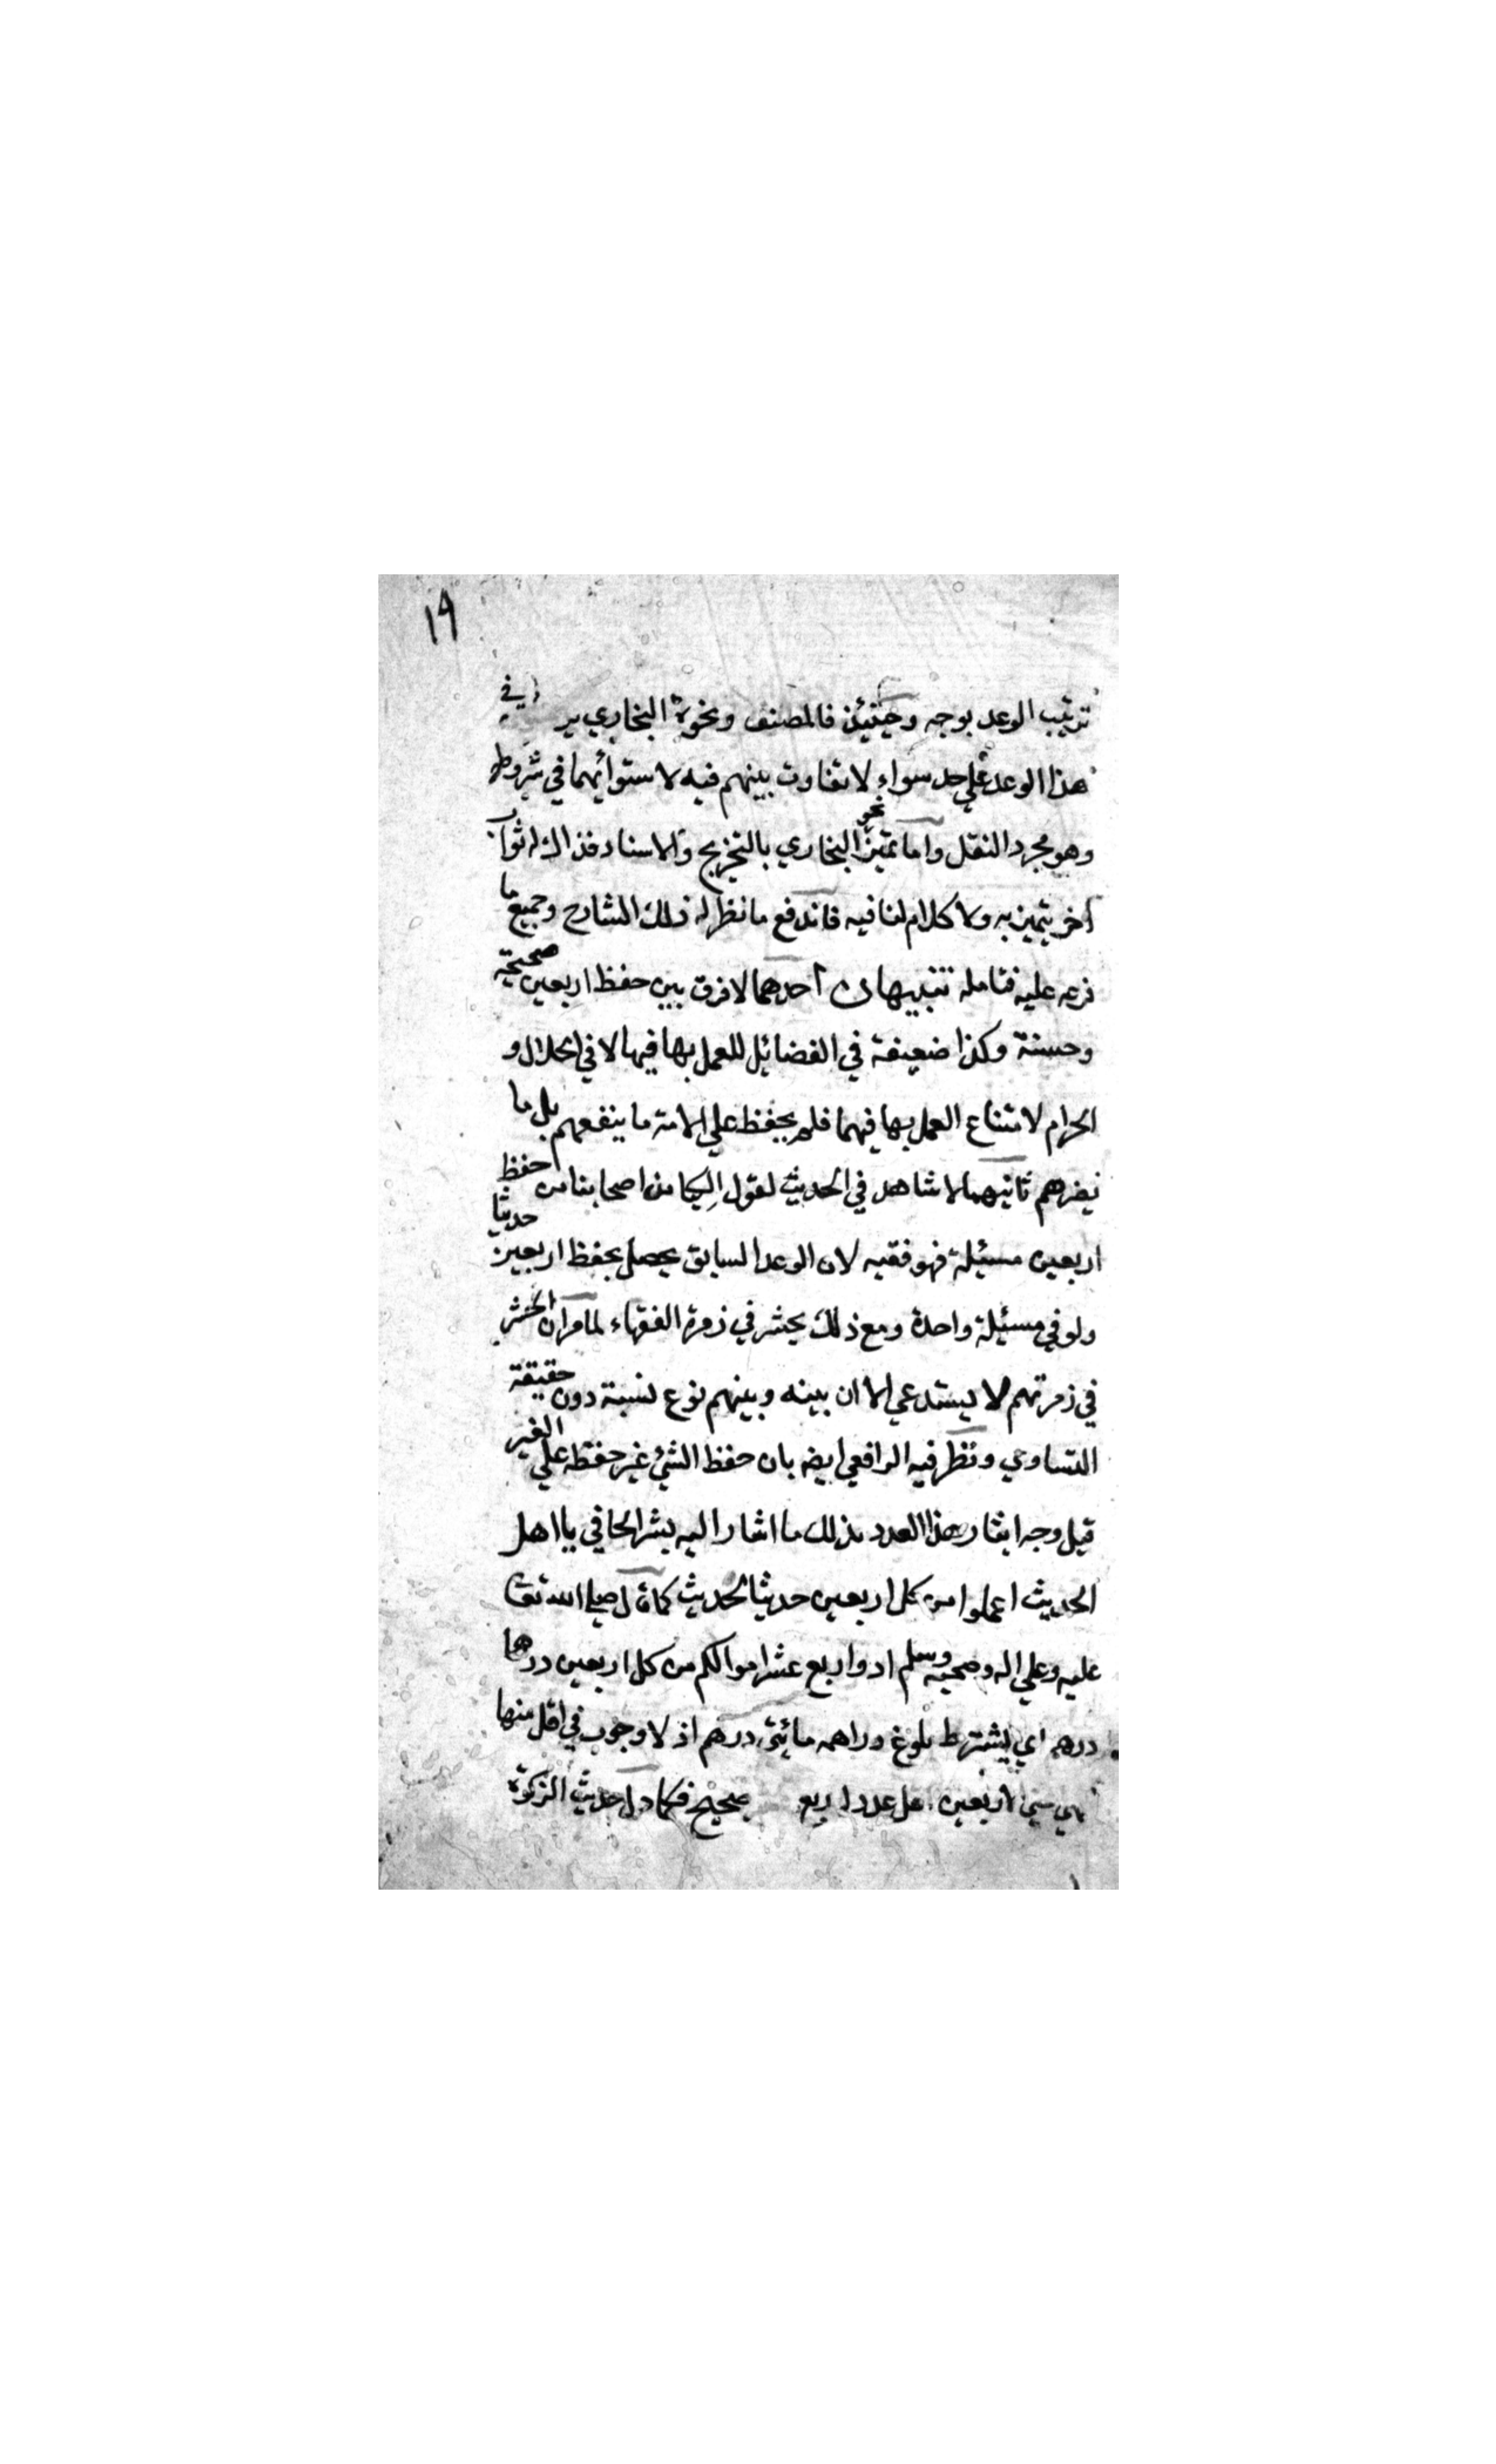 ١٩
ترتيب الوعد بوجه وحينئذ فالمصنف ونحوه البخاري في
هذا الوعد على حد سواء لا تفاوت بينهم فيه لاستوائهما في شروطه
وهو مجرد النقل واما تميز نحو البخاري بالتخريج والاسناد فذاك له ثواب
آخر يتميز به ولا كلام لنا فيه فاندفع ما نظر له ذلك الشارح وجميع ما
فرعه عليه فتامله تنبيهان احدهما لا فرق بين حفظ اربعين صحيحة
وحسنة وكذا ضعيفة في الفضائل للعمل بها فيها لا في الحلال و
الحرام لامتناع العمل بها فيهما فلم يحفظ علي الامة ما ينفعهم بل ما
يضرهم ثانيهما لا شاهد في الحديث لقول الكيا من اصحابنا من حفظ
اربعين مسئيلة فهو فقيه لان الوعد السابق يحصل بحفظ اربعين حديثا
ولو في مسئيلة واحدة ومع ذلك يحشر في زمرة الفقهاء لما مر ان الحشر
في زمرتهم لا يستدعي الا ان بينه وبينهم نوع نسبة دون حقيقة
التساوي ونظر فيه الرافعي ايضه بان حفظ الشئ غير حفظه علي الغير
قيل وجه ايثار هذا العدد بذلك ما اشار اليه بشر الحافي يا اهل
الحديث اعملوا من كل اربعين حديثا بحديث كما قال صلى الله تعا
عليه وعلي اله وصحبه وسلم ادوا ربع عشر اموالكم من كل اربعين درهما
درهم اي بشرط بلوغ دراهمه مائتي درهم اذ لا وجوب في اقل منها
اربعين عدد اربع صحيح فكما دل حديث الزكوة